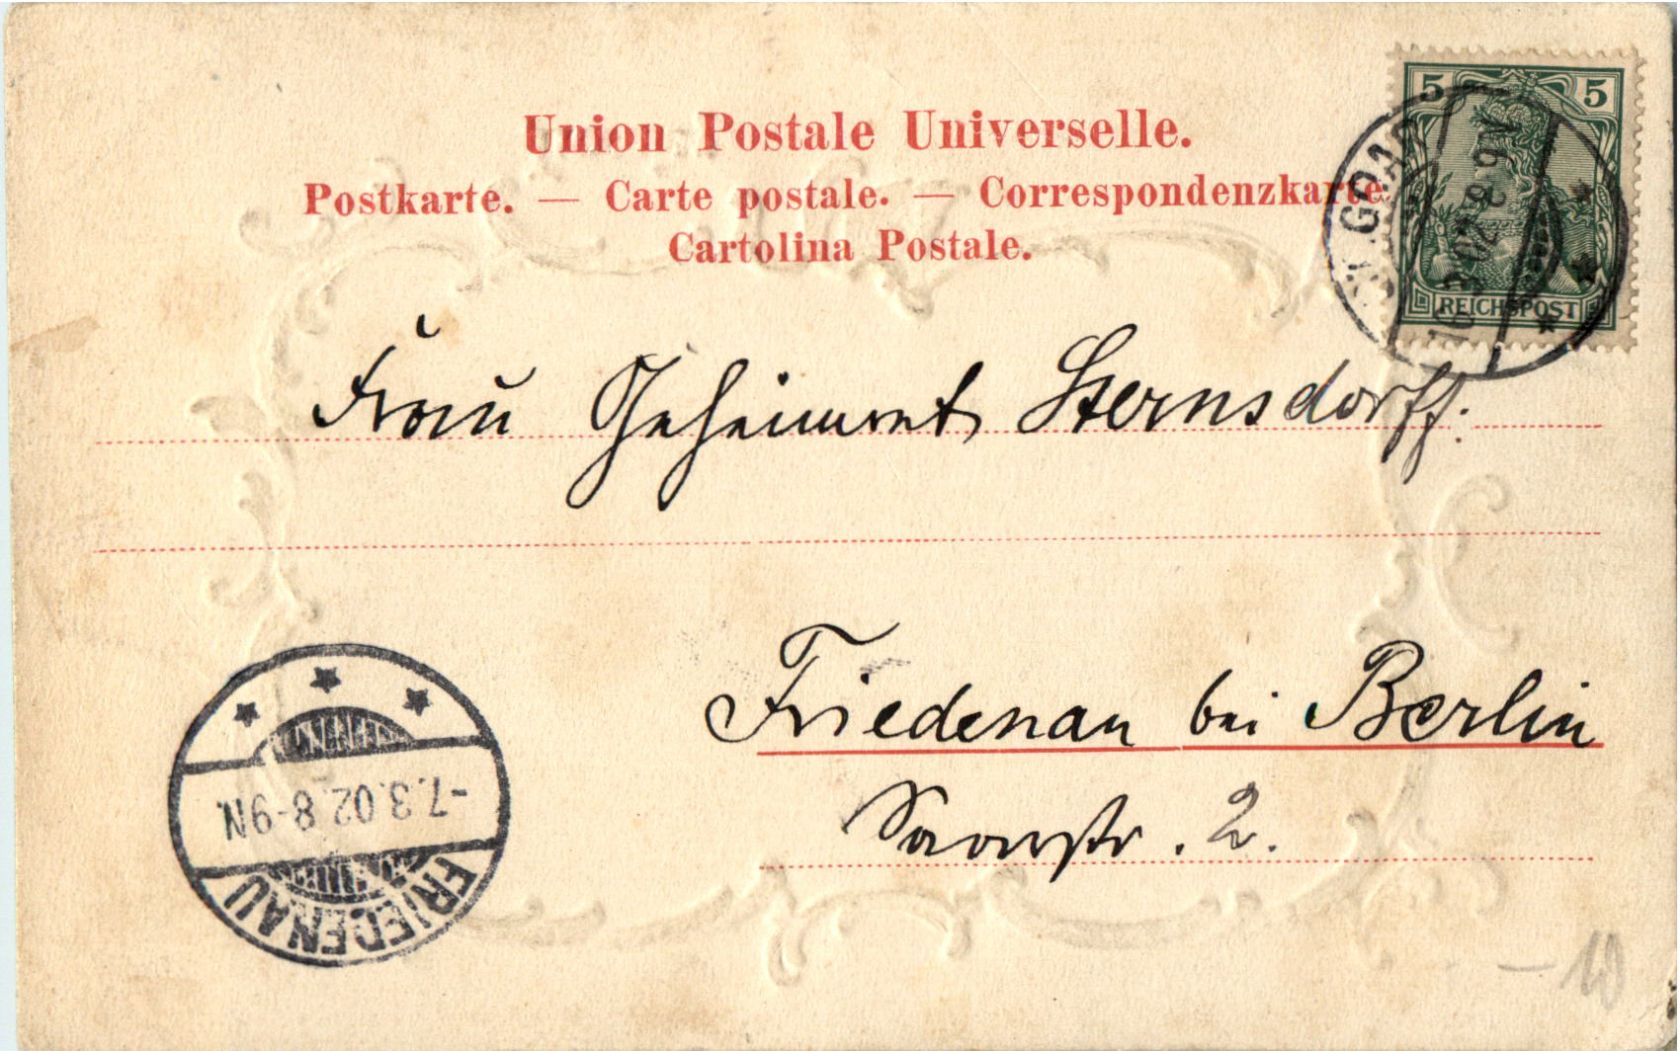 Union Postale Universelle.
Postkarte. — Carte postale. — Correspondenzkarte
Cartolina Postale.
5 5
REICHSPOST
ST. GOAR
3.02. 8-9N
Frau Geheimrat Sternsdorff.
Friedenau bei Berlin
Saarstr. 2.
-7.3.02.8-9N.
FRIEDENAU
- 10